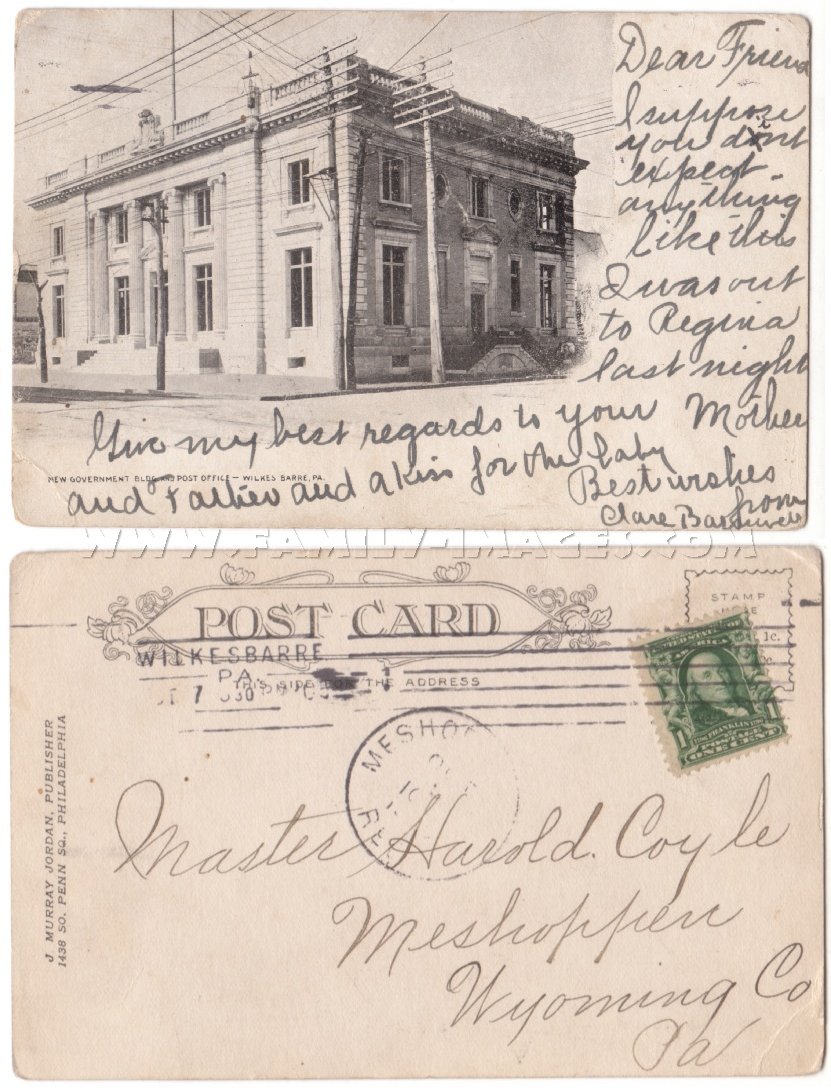 Dear Friend
I suppose
you don't
expect
anything
like this
I was out
to Regina
last night
Give my best regards to your Mother
and Father and a kiss for the baby
Best wishes
from
Clare
NEW GOVERNMENT BLDG AND POST OFFICE — WILKES BARRE, PA.
WWW.FAMILY-IMAGES.COM
POST CARD
THIS SIDE FOR THE ADDRESS
STAMP
WILKESBARRE
PA.
7 830 PM
MESHO
RE
FRANKLIN
POSTAGE
1 ONE CENT 1
J. MURRAY JORDAN, PUBLISHER
1438 SO. PENN SQ., PHILADELPHIA
Master Harold. Coyle
Meshoppen
Wyoming Co
Pa